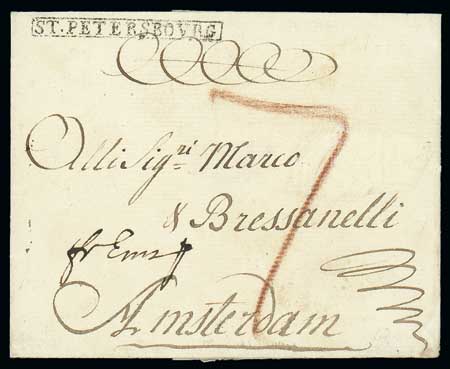 ST.PETERSBOVRG
7
Alli Sig.ri Marco
& Bressanelli
fr Ems
Amsterdam